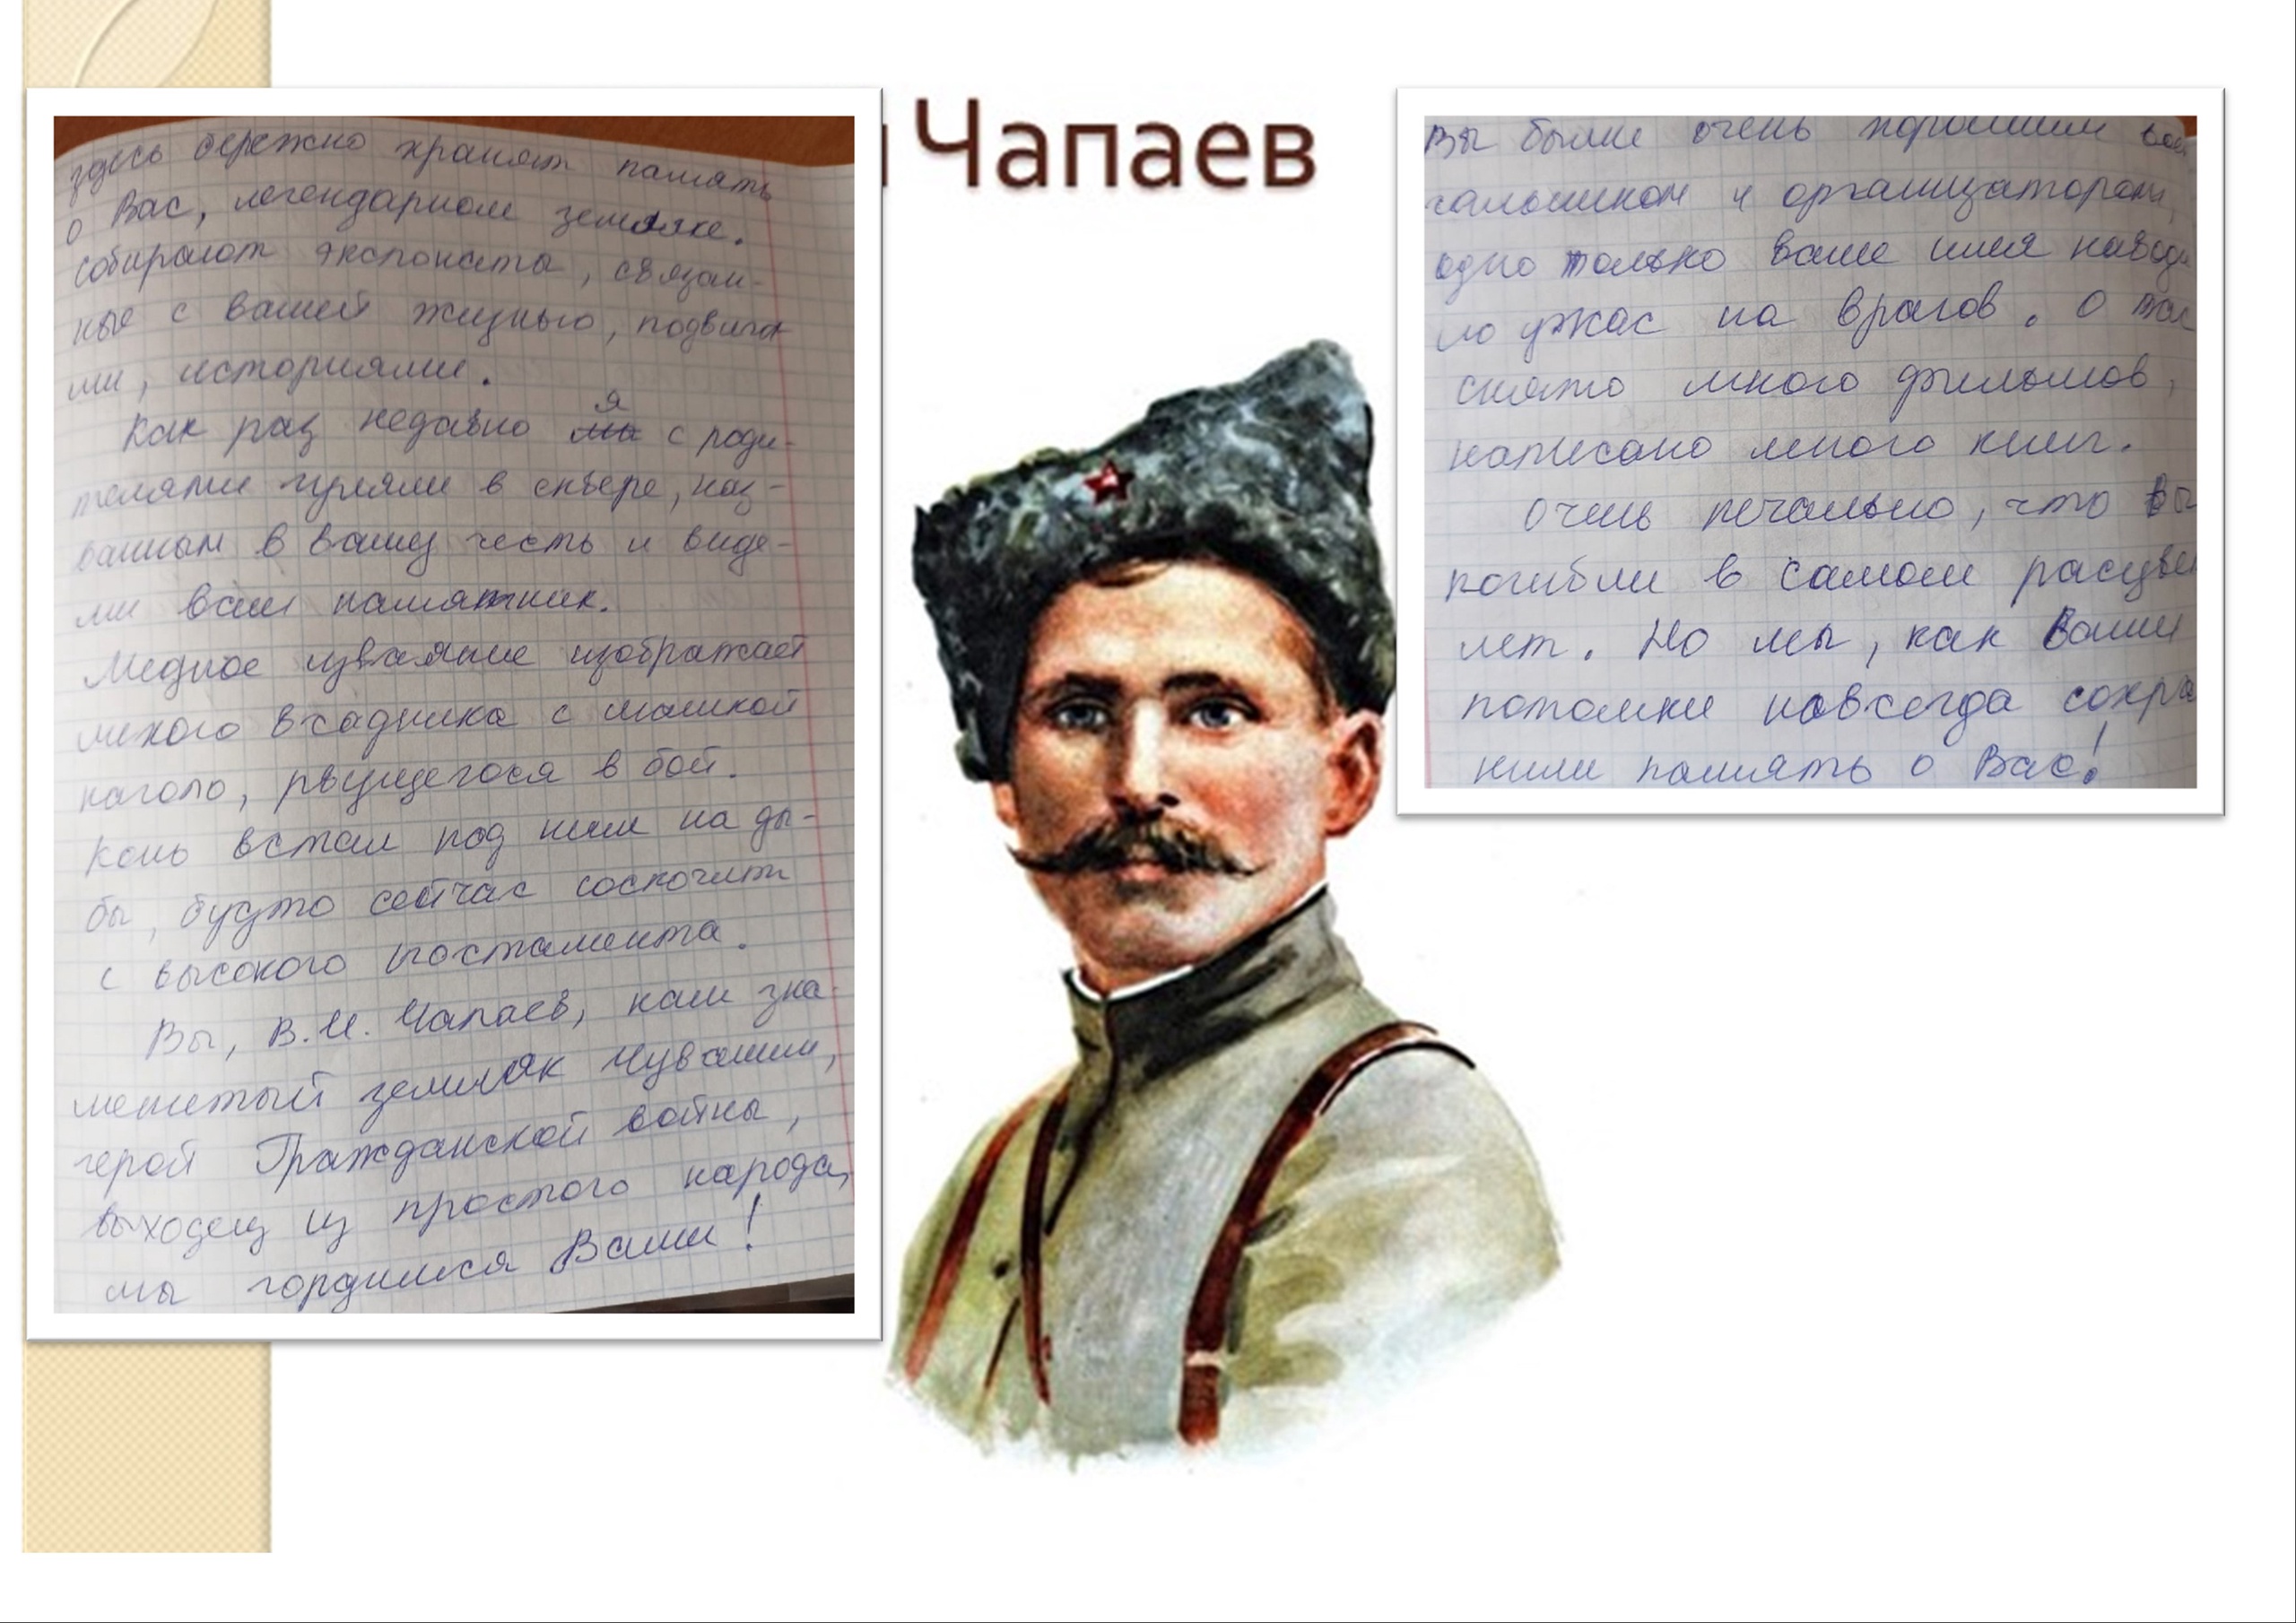 Чапаев
здесь бережно хранят память
о Вас, легендарном земляке.
собирают экспоната, связан-
ные с вашей жизнью, подвига
ми, историями.
Как раз недавно я с роди-
телями гуляли в сквере, наз-
ванным в вашу честь и виде-
ли ваш памятник.
Медное изваяние изображает
лихого всадника с шашкой
наголо, рвущегося в бой.
Конь встал под ним на ды-
бы, будто сейчас соскочит
с высокого постамента.
Вы, В.И. Чапаев, наш зна-
менитый земляк Чувашии,
герой Гражданской войны,
выходец из простого народа,
мы гордимся Вами!
Вы были очень хорошим вое
чальником и организатором,
одно только ваше имя наводи
ло ужас на врагов. О
снято много фильмов,
написано много книг.
Очень печально, что вы
погибли в самом расцве
лет. Но мы, как Ваши
потомки навсегда сохра
нили память о Вас!